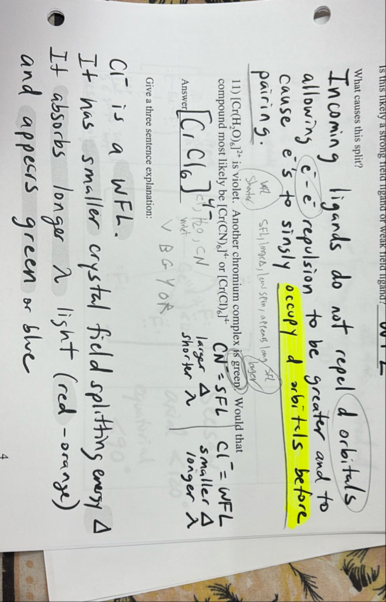 Is this likely a strong field ligand or weak field ligand? WFL
What causes this split?
Incoming ligands do not repel d orbitals
allowing e⁻-e⁻ repulsion to be greater and to
cause e⁻s to singly occupy d orbitals before
pairing.
11) [Cr(H₂O)₆]²⁺ is violet. Another chromium complex is green. Would that
compound most likely be [Cr(CN)₆]⁴⁻ or [Cr(Cl)₆]⁴⁻
CN⁻ = SFL Cl⁻ = WFL
larger Δ smaller Δ
shorter λ longer λ
Answer [CrCl₆]⁴⁻
V B G Y O R
Give a three sentence explanation:
Cl⁻ is a WFL.
It has smaller crystal field splitting energy Δ
It absorbs longer λ light (red-orange)
and appears green or blue
4